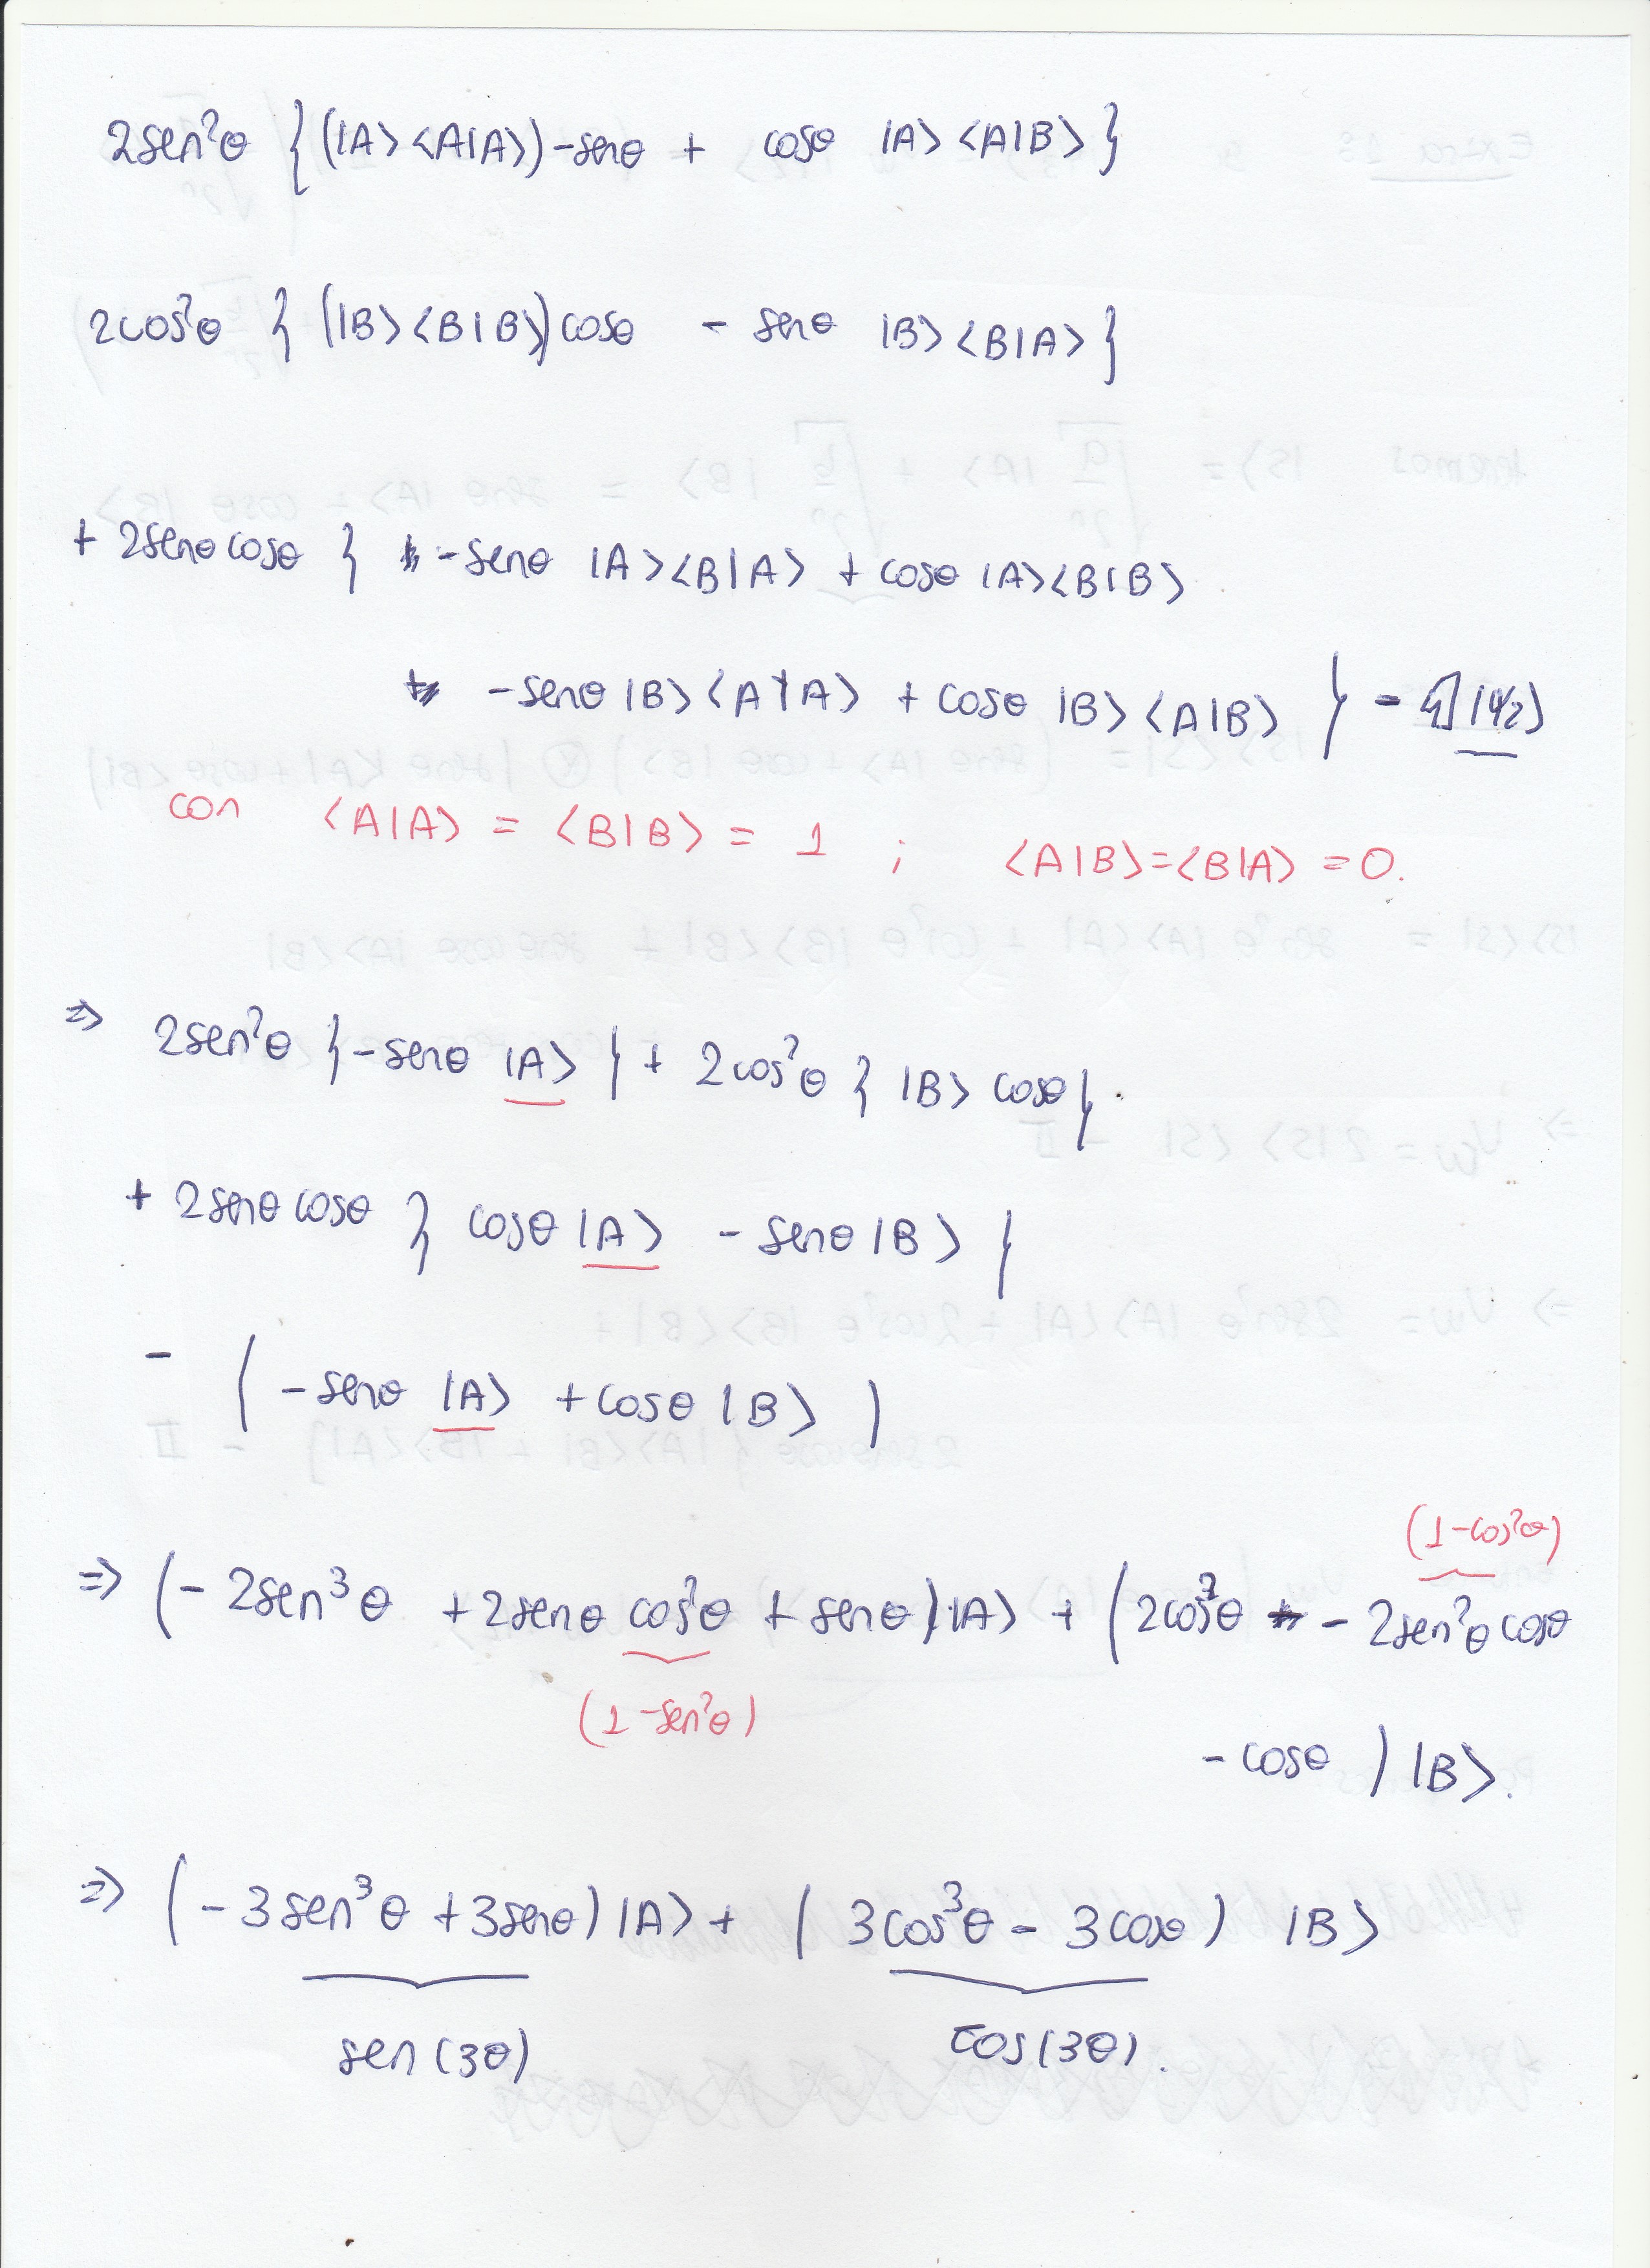 2sen²θ {(|A><A|A>)-senθ + cosθ |A><A|B>}
2cos²θ {(|B><B|B>)cosθ - senθ |B><B|A>}
+ 2senθcosθ { -senθ |A><B|A> + cosθ |A><B|B>
-senθ|B><A|A> + cosθ |B><A|B> } - 𝟙|ψ₂>
con <A|A> = <B|B> = 1 ; <A|B>=<B|A> =0.
=> 2sen²θ {-senθ |A> } + 2cos²θ { |B> cosθ}.
+ 2senθcosθ { cosθ|A> - senθ|B> }
- ( -senθ |A> +cosθ |B> )
(1-cos²θ)
=> (- 2sen³θ +2senθ cos²θ + senθ)|A> + (2cos³θ - 2sen²θcosθ
(1-sen²θ)
-cosθ ) |B>.
=> (-3sen³θ +3senθ)|A> + ( 3cos³θ - 3cosθ) |B>
sen(3θ) cos(3θ).